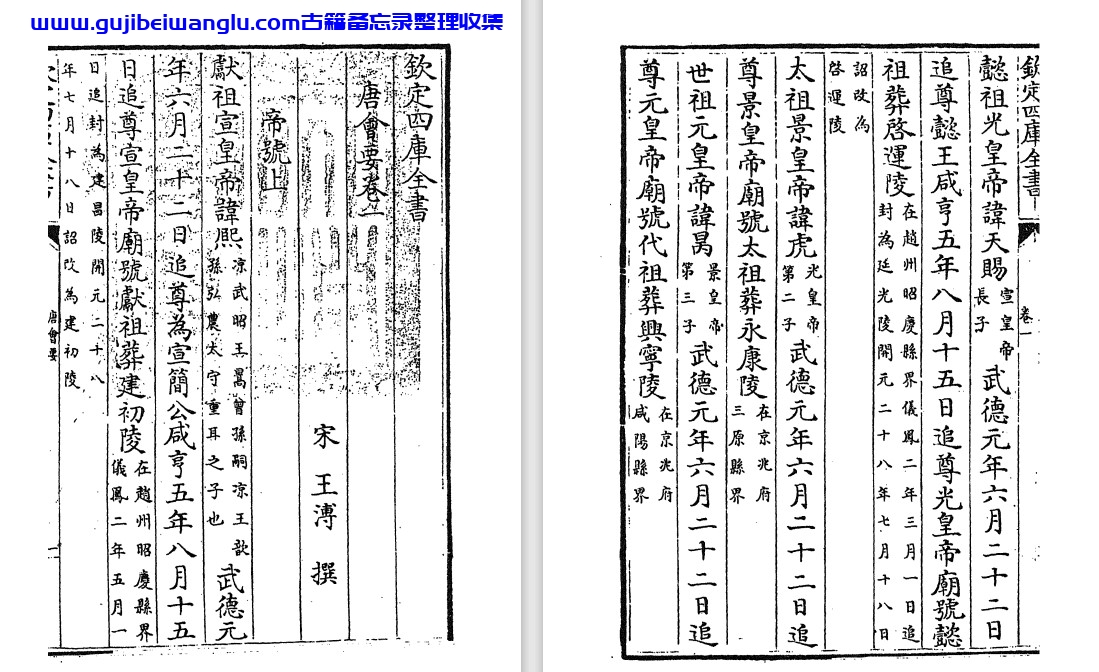 www.gujibeiwanglu.com古籍备忘录整理收集
欽定四庫全書
唐會要卷一
宋 王溥 撰
帝號上
獻祖宣皇帝諱熙凉武昭王暠曾孫嗣凉王歆孫弘農太守重耳之子也武德元
年六月二十二日追尊為宣簡公咸亨五年八月十五
日追尊宣皇帝廟號獻祖葬建初陵在趙州昭慶縣界儀鳳二年五月一
日追封為建昌陵開元二十八年七月十八日詔改為建初陵
唐會要
欽定四庫全書 卷一
懿祖光皇帝諱天賜宣皇帝長子武德元年六月二十二日
追尊懿王咸亨五年八月十五日追尊光皇帝廟號懿
祖葬啓運陵在趙州昭慶縣界儀鳳二年三月一日追封為延光陵開元二十八年七月十八日
詔改為啓運陵
太祖景皇帝諱虎光皇帝第二子武德元年六月二十二日追
尊景皇帝廟號太祖葬永康陵在京兆府三原縣界
世祖元皇帝諱昺景皇帝第三子武德元年六月二十二日追
尊元皇帝廟號代祖葬興寧陵在京兆府咸陽縣界